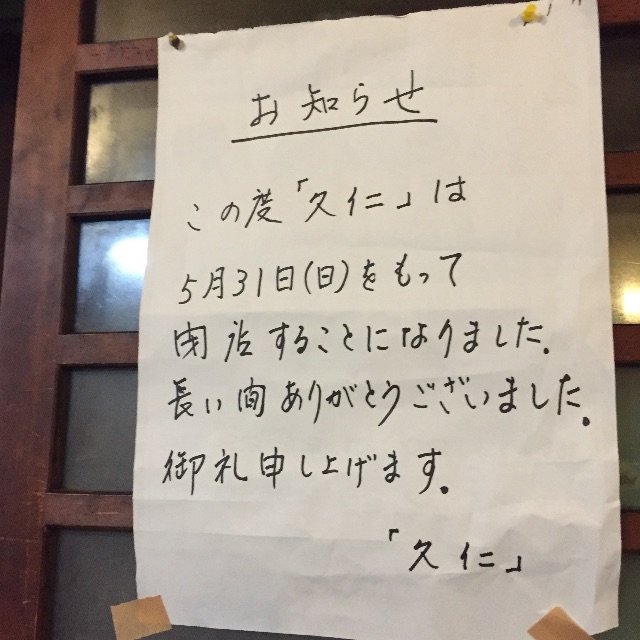 お知らせ
この度「久仁」は
5月31日(日)をもって
閉店することになりました.
長い間ありがとうございました.
御礼申し上げます.
「久仁」